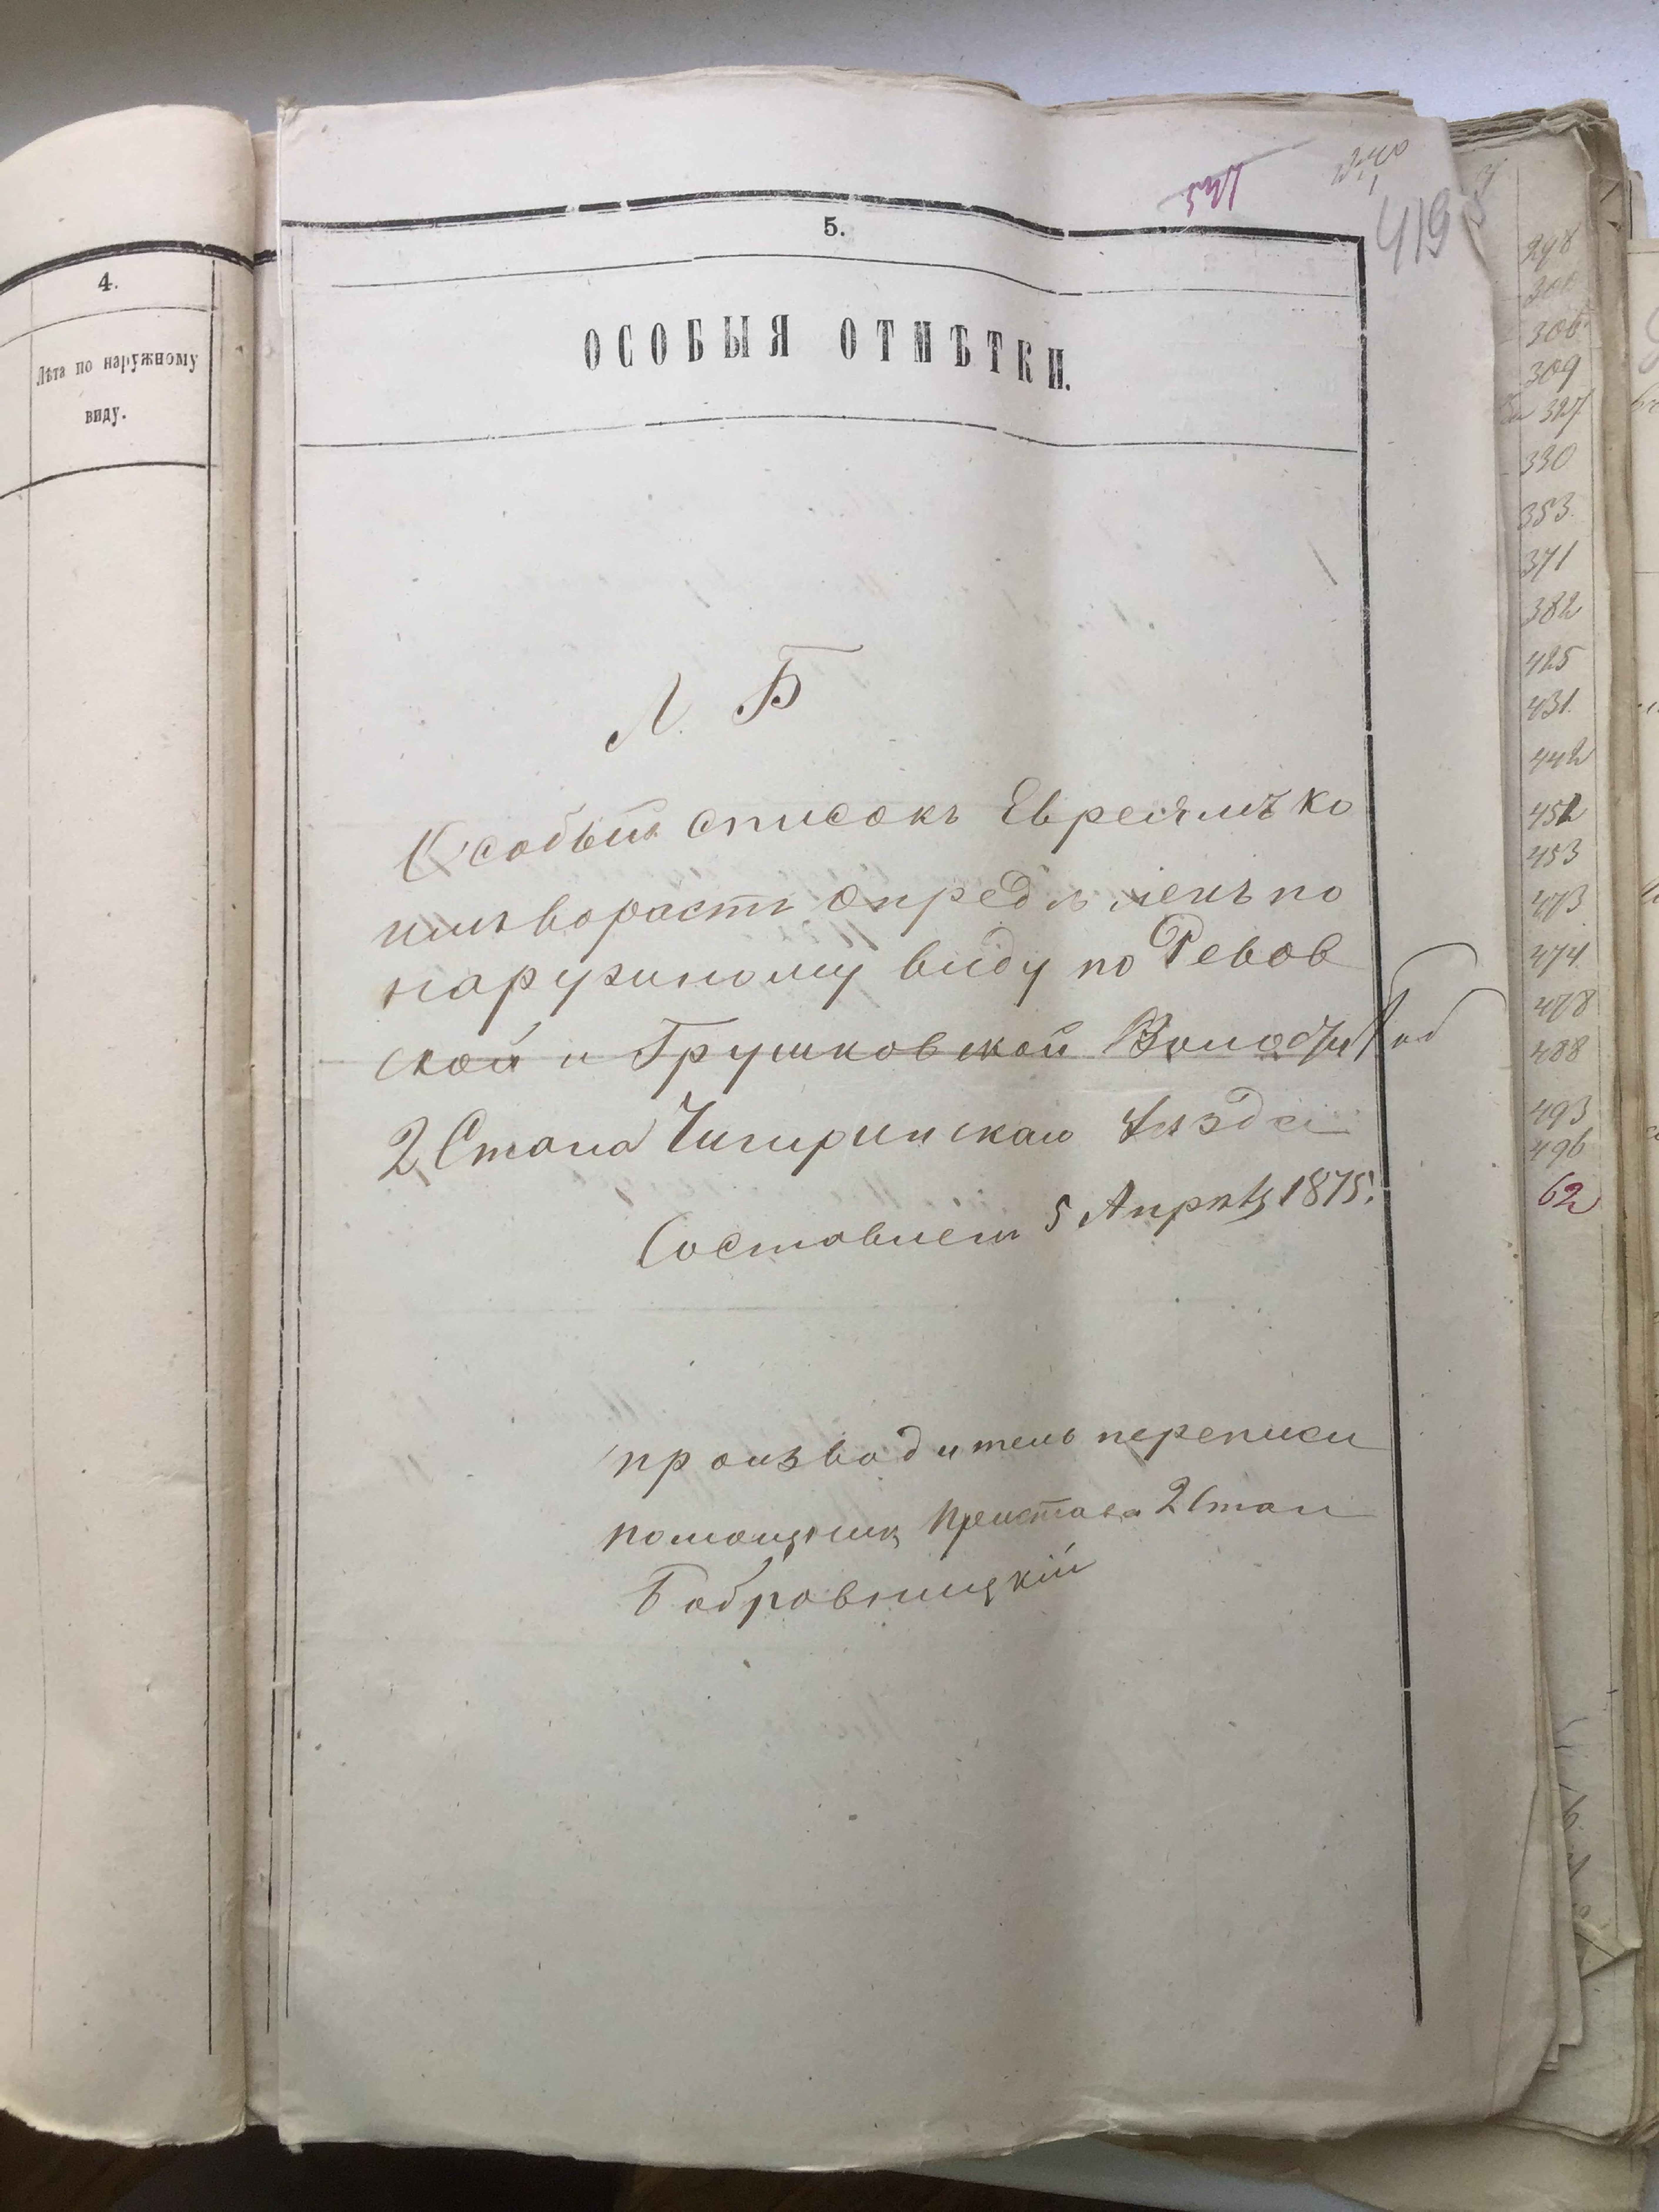 4.
Лѣта по наружному
виду.
5.
ОСОБЫЯ ОТМѢТКИ.
419
Л. Б
Особый списокъ Евреямъ ко
имъ вораст опредѣленъ по
наружному виду по Ревов
ской и Грушковской
2 Стана Чигиринскаго Уѣзда
Составлен 5 Апрѣля 1875.
производитель переписи
помощник Пристава 2 Стан
Бобровницкій
298
306
309
327
330
353
371
382
425
431.
442
452
453
473
474
478
488
493
496
62